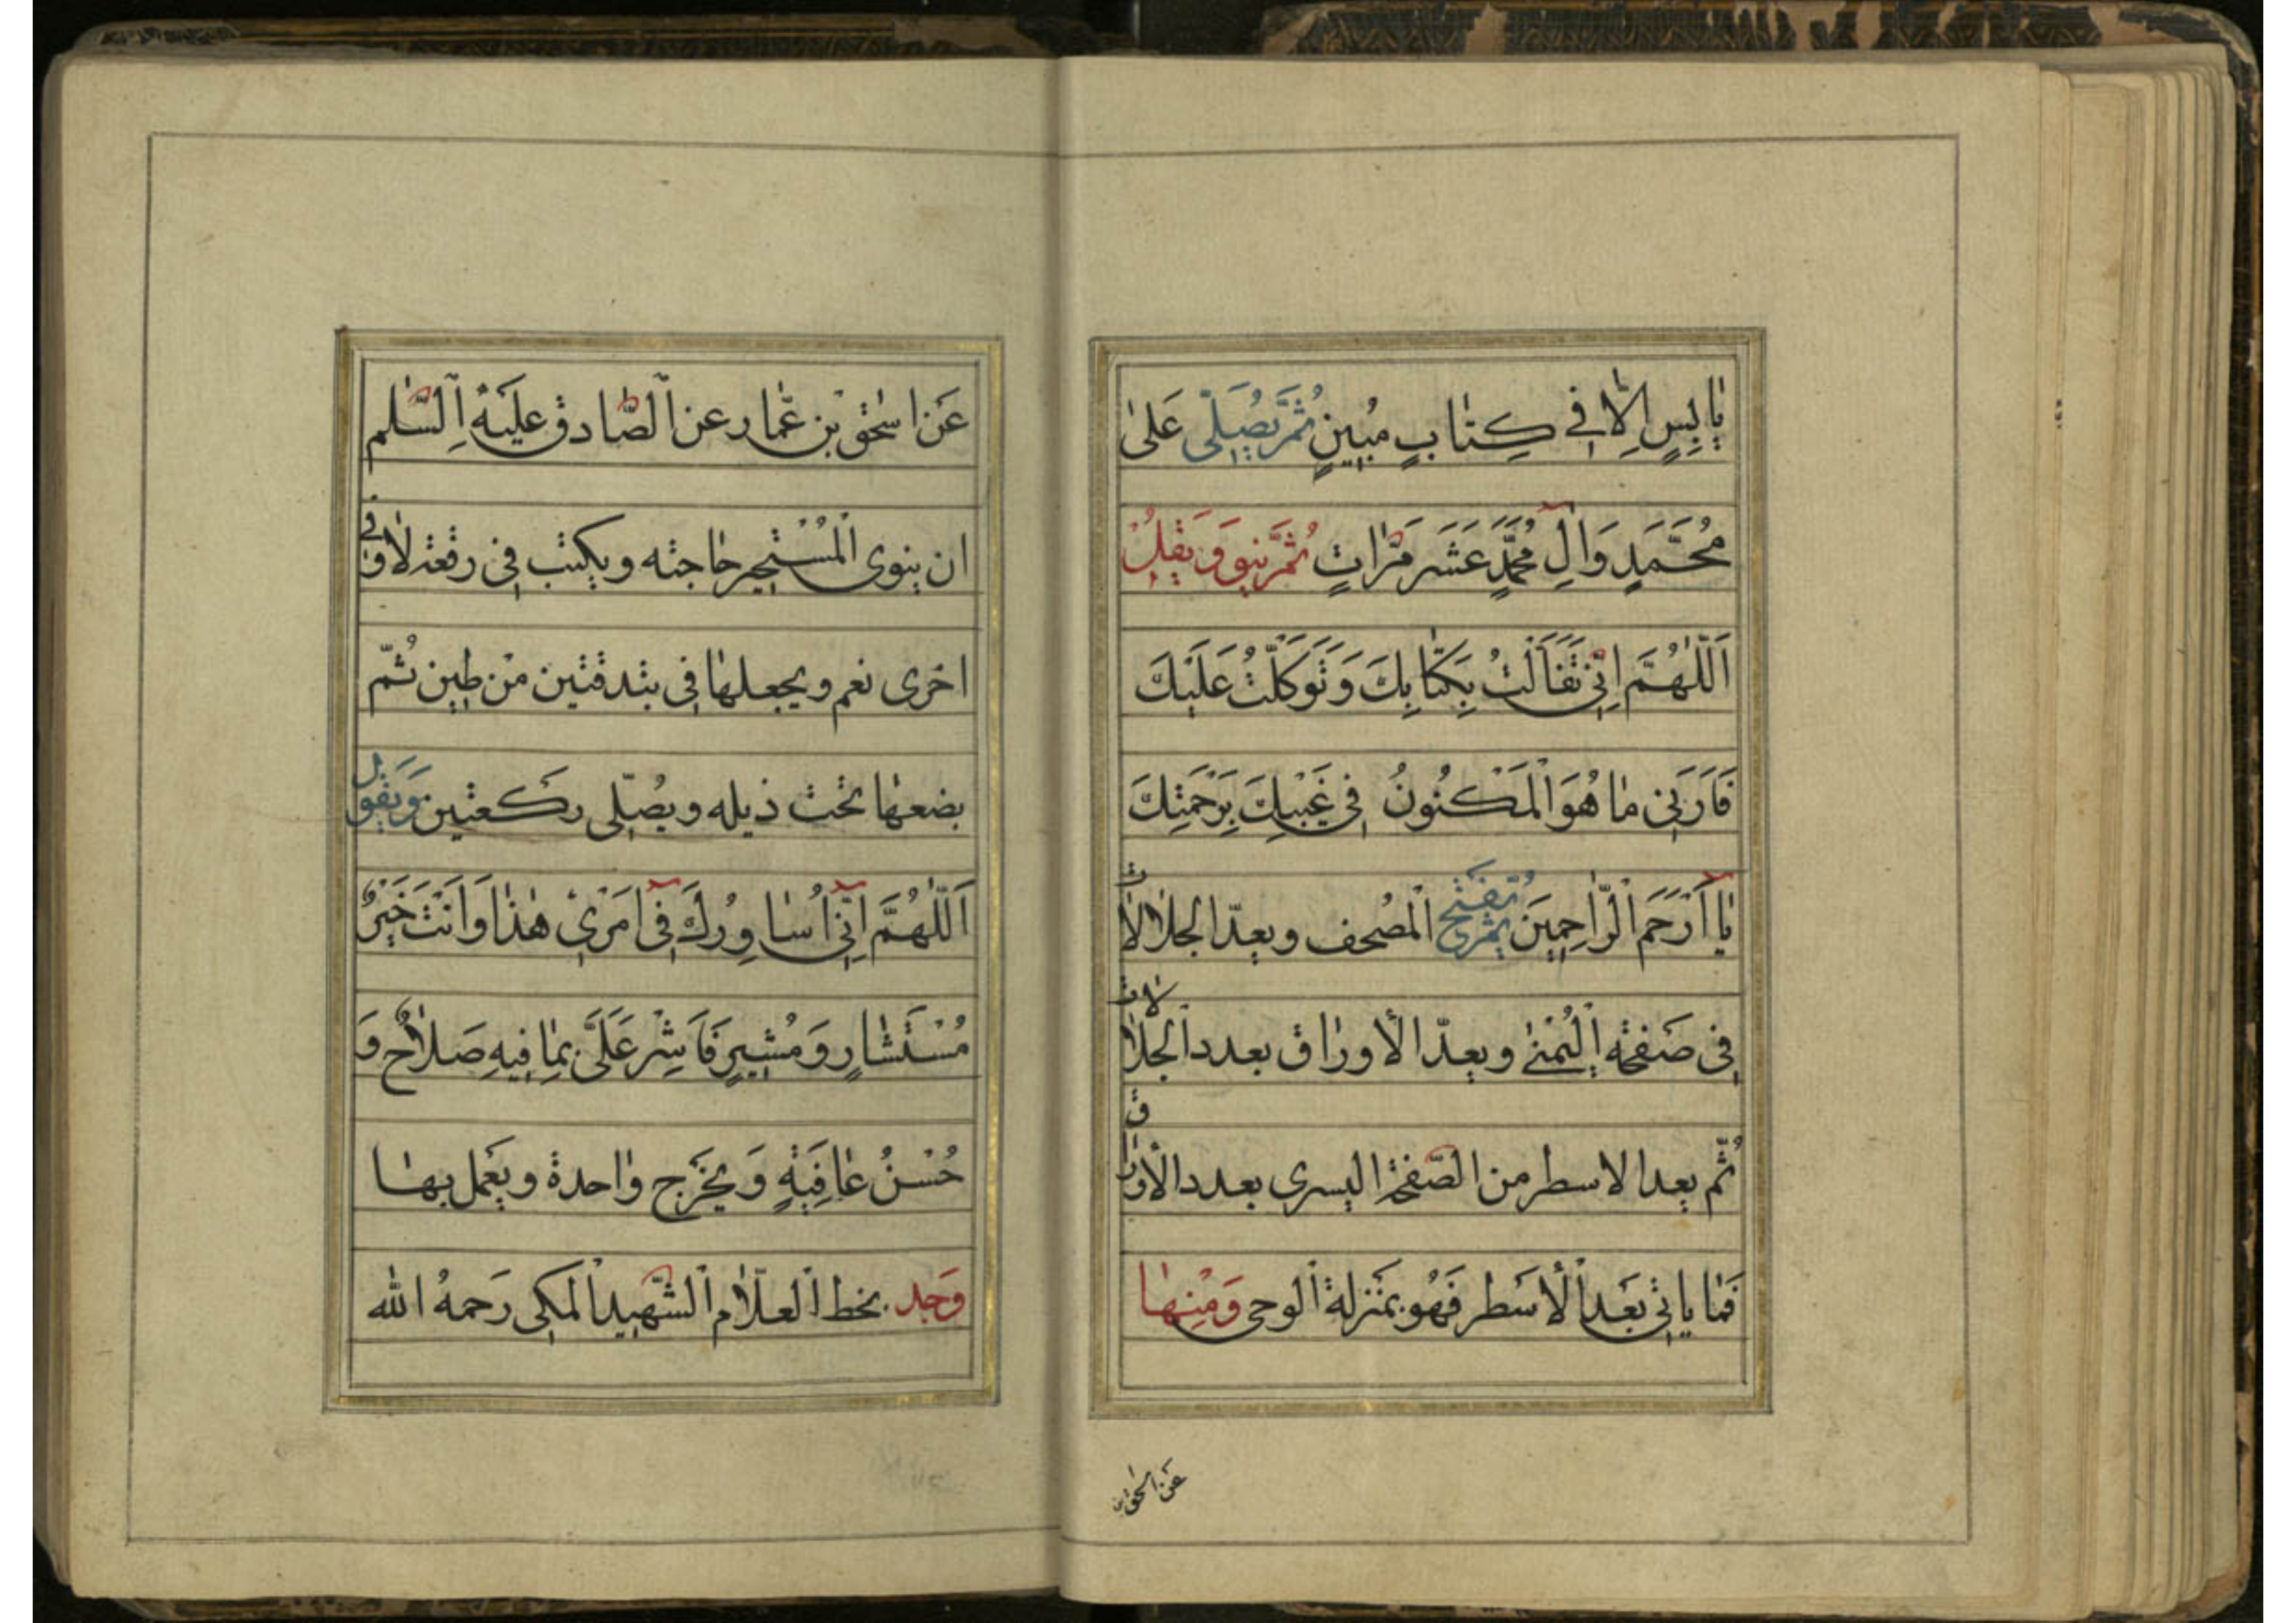 يٰابِسٍ اِلّٰا فِي كِتٰابٍ مُبِينٍ ثُمَّ يُصَلّى عَلىٰ
مُحَمَّدٍ وَالِ مُحَمَّدٍ عَشَرَ مَرّٰاتٍ ثُمَّ ينوِ وَيَقُلُ
اَللّٰهُمَّ اِنّى تَفَأَلْتُ بِكتٰابِكَ وَتَوَكَّلْتُ عَلَيْكَ
فَاَرَنِي مٰا هُوَ الْمَكْنُونُ فِي غَيْبِكَ بِرَحْمَتِكَ
يٰا اَرْحَمَ الرّٰاحِمِينَ ثُمَّ يفْتَح الْمصُحف ويعدّ الجلالات
فِي صَفحْة الْيُمْنىٰ ويعدّ الأورٰاق بعدد الجلالات
ثُمّ يعد الاسطر من الصّفحة اليسرى بعدد الأورٰاق
فَمٰا ياتي بَعَد الْأسَطر فَهُو بمَنزلة الوحى وَمْنِهٰا
عَن اسْحٰق
عَن اسْحٰق بْن عَمّٰار عن الصّٰادق عليَه السّلم
ان ينوى الْمُسْتجير حٰاجته ويكتب في رقعة لا وفي
اخرى نعم ويجعلهٰا في بندقتين منْ طين ثُمّ
يضعهٰا تحْت ذيله ويصُلّى ركَعتين وَيَقول
اَللّٰهُمَّ اِنّي اُسٰاوِرُكَ فِي اَمْرَيْ هٰذٰا وَاَنْتَ خَيْرُ
مُسْتَشٰارٍ وَمُشِيرٍ فَاَشِرْ عَلَىَّ بِمٰا فِيهِ صَلٰاحٌ وَ
حُسْنُ عٰافِيَةٍ وَيخَرج وٰاحدة ويعَمل بهٰا
وَجد بخط الْعلّٰام الشّهيد الْمَكى رَحمهُ الله